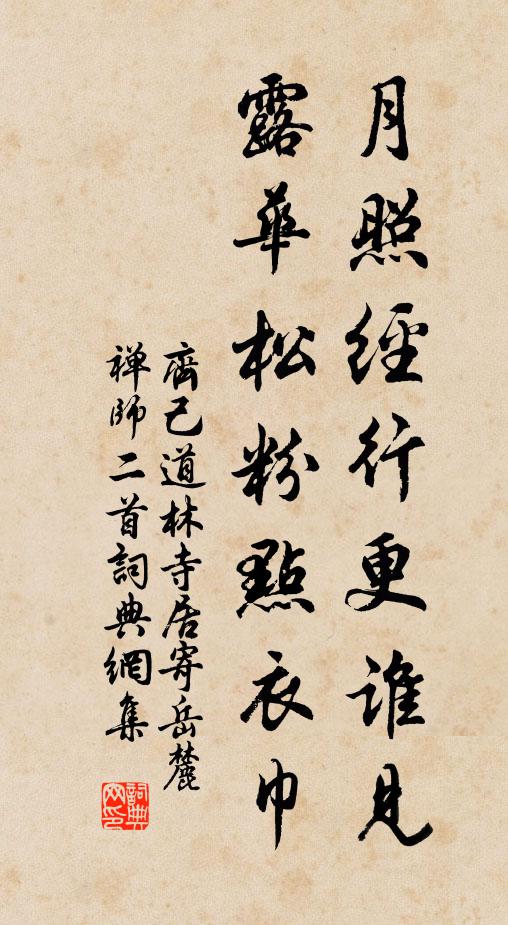 月照經行更誰見
露華松粉點衣巾
齊己道林寺居寄岳麓
禅師二首詞典網集
詞典网印